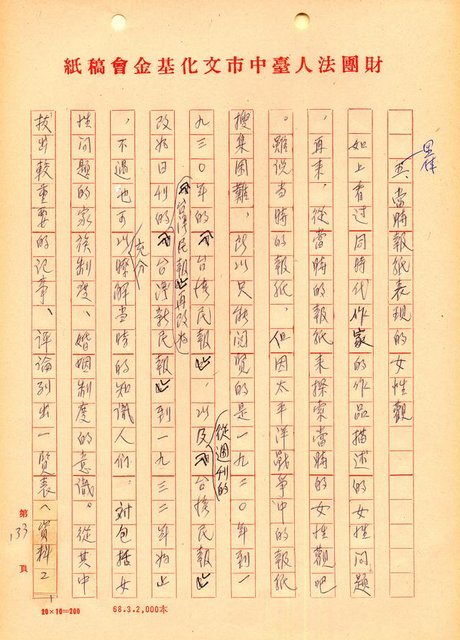 財團法人臺中市文化基金會稿紙
五、當時報紙表現的女性觀
如上看过同時代作家的作品描述的女性问題
，再來，從當時的報紙來探索當時的女性觀吧
。雖说當時的報紙，但因太平洋战爭中的報紙
搜集困難，所以只能阅覽的是一九二〇年到一
九三〇年的《台湾民報》，以及《台湾民報》
從週刊的
《台湾民報》再改为
改为日刊的《台灣新民報》到一九三二年为止
，不過也可以瞭解當時的知識人们，対包括女
充分
性问題的家族制度、婚姻制度的意識。從其中
拔出較重要的记事、评論列出一覽表（資料2
第 133 頁
20×10=200
68.3.2,000本